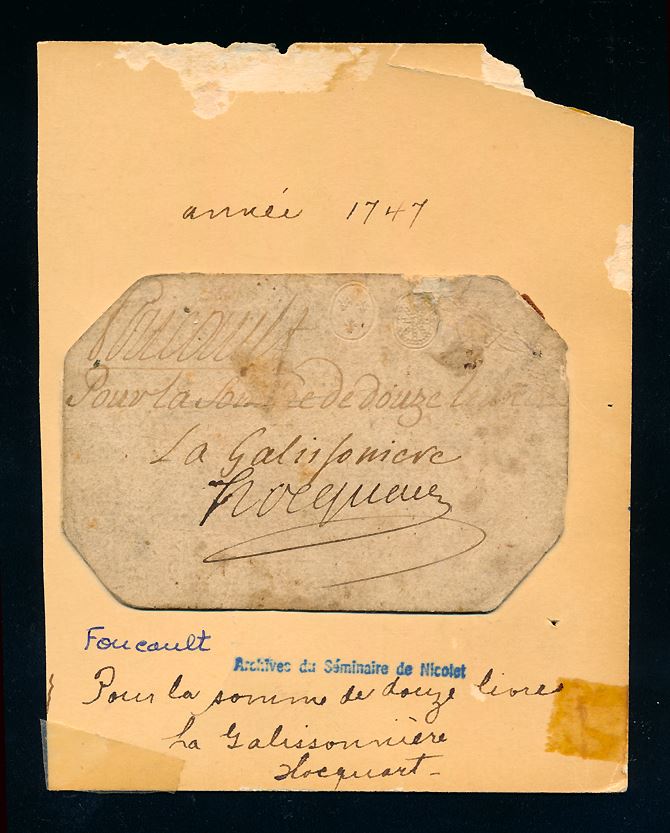 année 1747
Foucault
Pour la somme de douze livres
La Galissoniere
hocquart
Foucault
Archives du Séminaire de Nicolet
Pour la somme de douze livres
La Galissonnière
Hocquart -